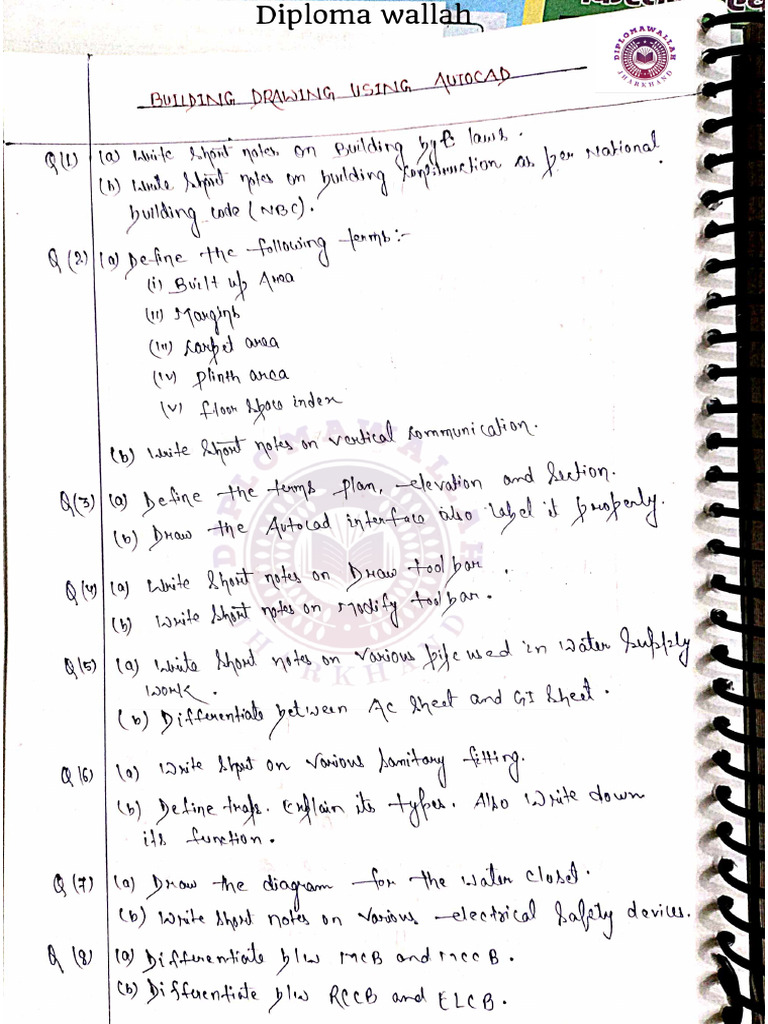 Diploma wallah
DIPLOMAWALLAH
JHARKHAND
BUILDING DRAWING USING AUTOCAD
Q(1) (a) Write short notes on Building bye laws.
(b) Write short notes on building construction as per National
building code (NBC).
Q(2) (a) Define the following terms:-
(i) Built up Area
(ii) Margins
(iii) Carpet area
(iv) Plinth area
(v) floor space index
(b) Write short notes on vertical communication.
Q(3) (a) Define the terms plan, elevation and Section.
(b) Draw the Autocad interface also label it properly.
Q(4) (a) Write short notes on Draw toolbar.
(b) Write short notes on modify toolbar.
Q(5) (a) Write short notes on various pipe used in water supply
work.
(b) Differentiate between AC sheet and GI sheet.
Q(6) (a) Write short on various sanitary fitting.
(b) Define traps. Explain its types. Also write down
its function.
Q(7) (a) Draw the diagram for the water closet.
(b) Write short notes on various electrical safety devices.
Q(8) (a) Differentiate b/w MCB and MCCB.
(b) Differentiate b/w RCCB and ELCB.
DIPLOMAWALLAH
JHARKHAND